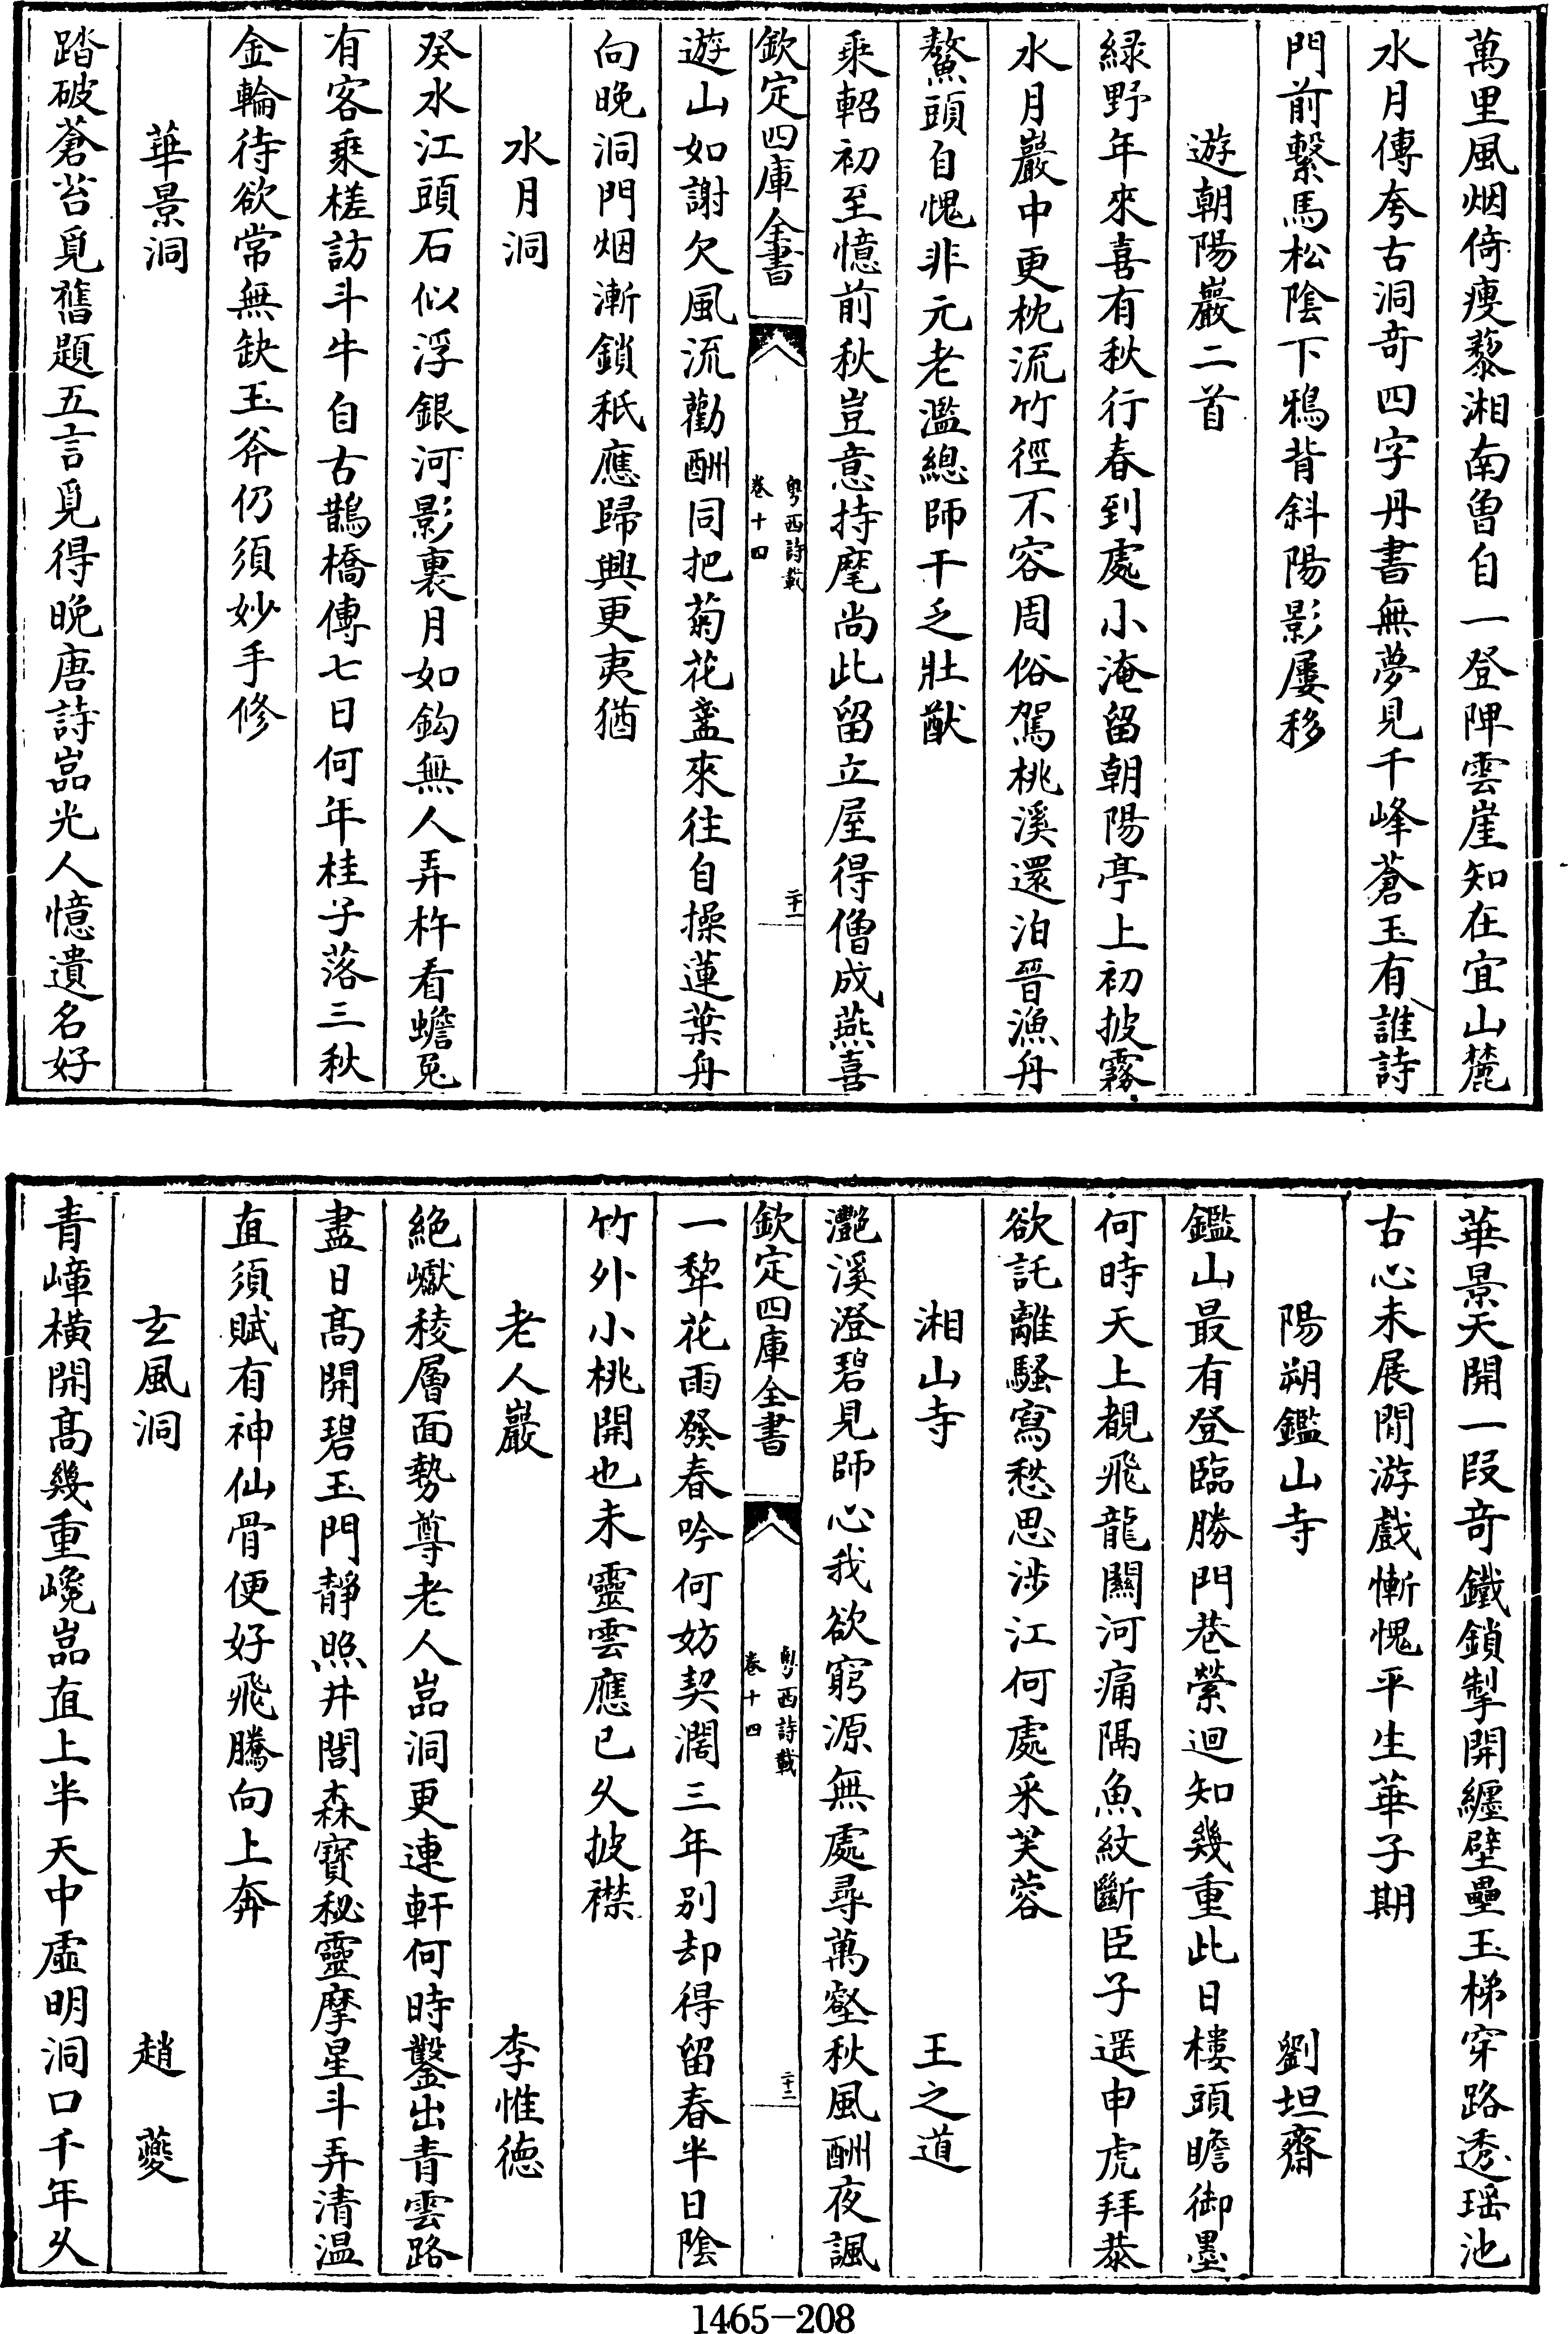 萬里風烟倚瘦藜湘南曽自一登陴雲崖知在宜山麓
水月傳夸古洞竒四字丹書無夢見千峰蒼玉有誰詩
門前繫馬松陰下鴉背斜陽影屢移
遊朝陽巖二首
緑野年來喜有秋行春到處小淹留朝陽亭上初披霧
水月巖中更枕流竹徑不容周俗駕桃溪還泊晉漁舟
鰲頭自愧非元老濫總師干乏壯猷
乘軺初至憶前秋豈意持麾尚此留立屋得僧成燕喜
欽定四庫全書
粤西詩載
卷十四
二十一
遊山如謝欠風流勸酬同把菊花盞來往自操蓮葉舟
向晚洞門烟漸鎖秖應歸興更夷猶
水月洞
癸水江頭石似浮銀河影裏月如鈎無人弄杵看蟾兎
有客乘槎訪斗牛自古鵲橋傳七日何年桂子落三秋
金輪待欲常無缺玉斧仍須妙手修
華景洞
踏破蒼苔覓舊題五言覓得晚唐詩嵓光人憶遺名好
華景天開一段竒鐵鎖掣開纏壁壘玉梯穿路透瑶池
古心未展閒游戲慚愧平生華子期
陽朔鑑山寺
劉坦齋
鑑山最有登臨勝門巷縈迴知幾重此日樓頭瞻御墨
何時天上覩飛龍關河痛隔魚紋斷臣子遥申虎拜恭
欲託離騷寫愁思涉江何處采芙蓉
湘山寺
王之道
灔溪澄碧見師心我欲窮源無處尋萬壑秋風酬夜諷
欽定四庫全書
粤西詩載
卷十四
二十二
一犂花雨發春吟何妨契濶三年别却得留春半日陰
竹外小桃開也未靈雲應已乆披襟
老人巖
李惟德
絶巘稜層面勢尊老人嵓洞更連軒何時鑿出青雲路
盡日髙開碧玉門靜照井閭森寳秘靈摩星斗弄清温
直須賦有神仙骨便好飛騰向上奔
玄風洞
趙夔
青嶂橫開髙幾重巉嵓直上半天中虛明洞口千年乆
1465-208